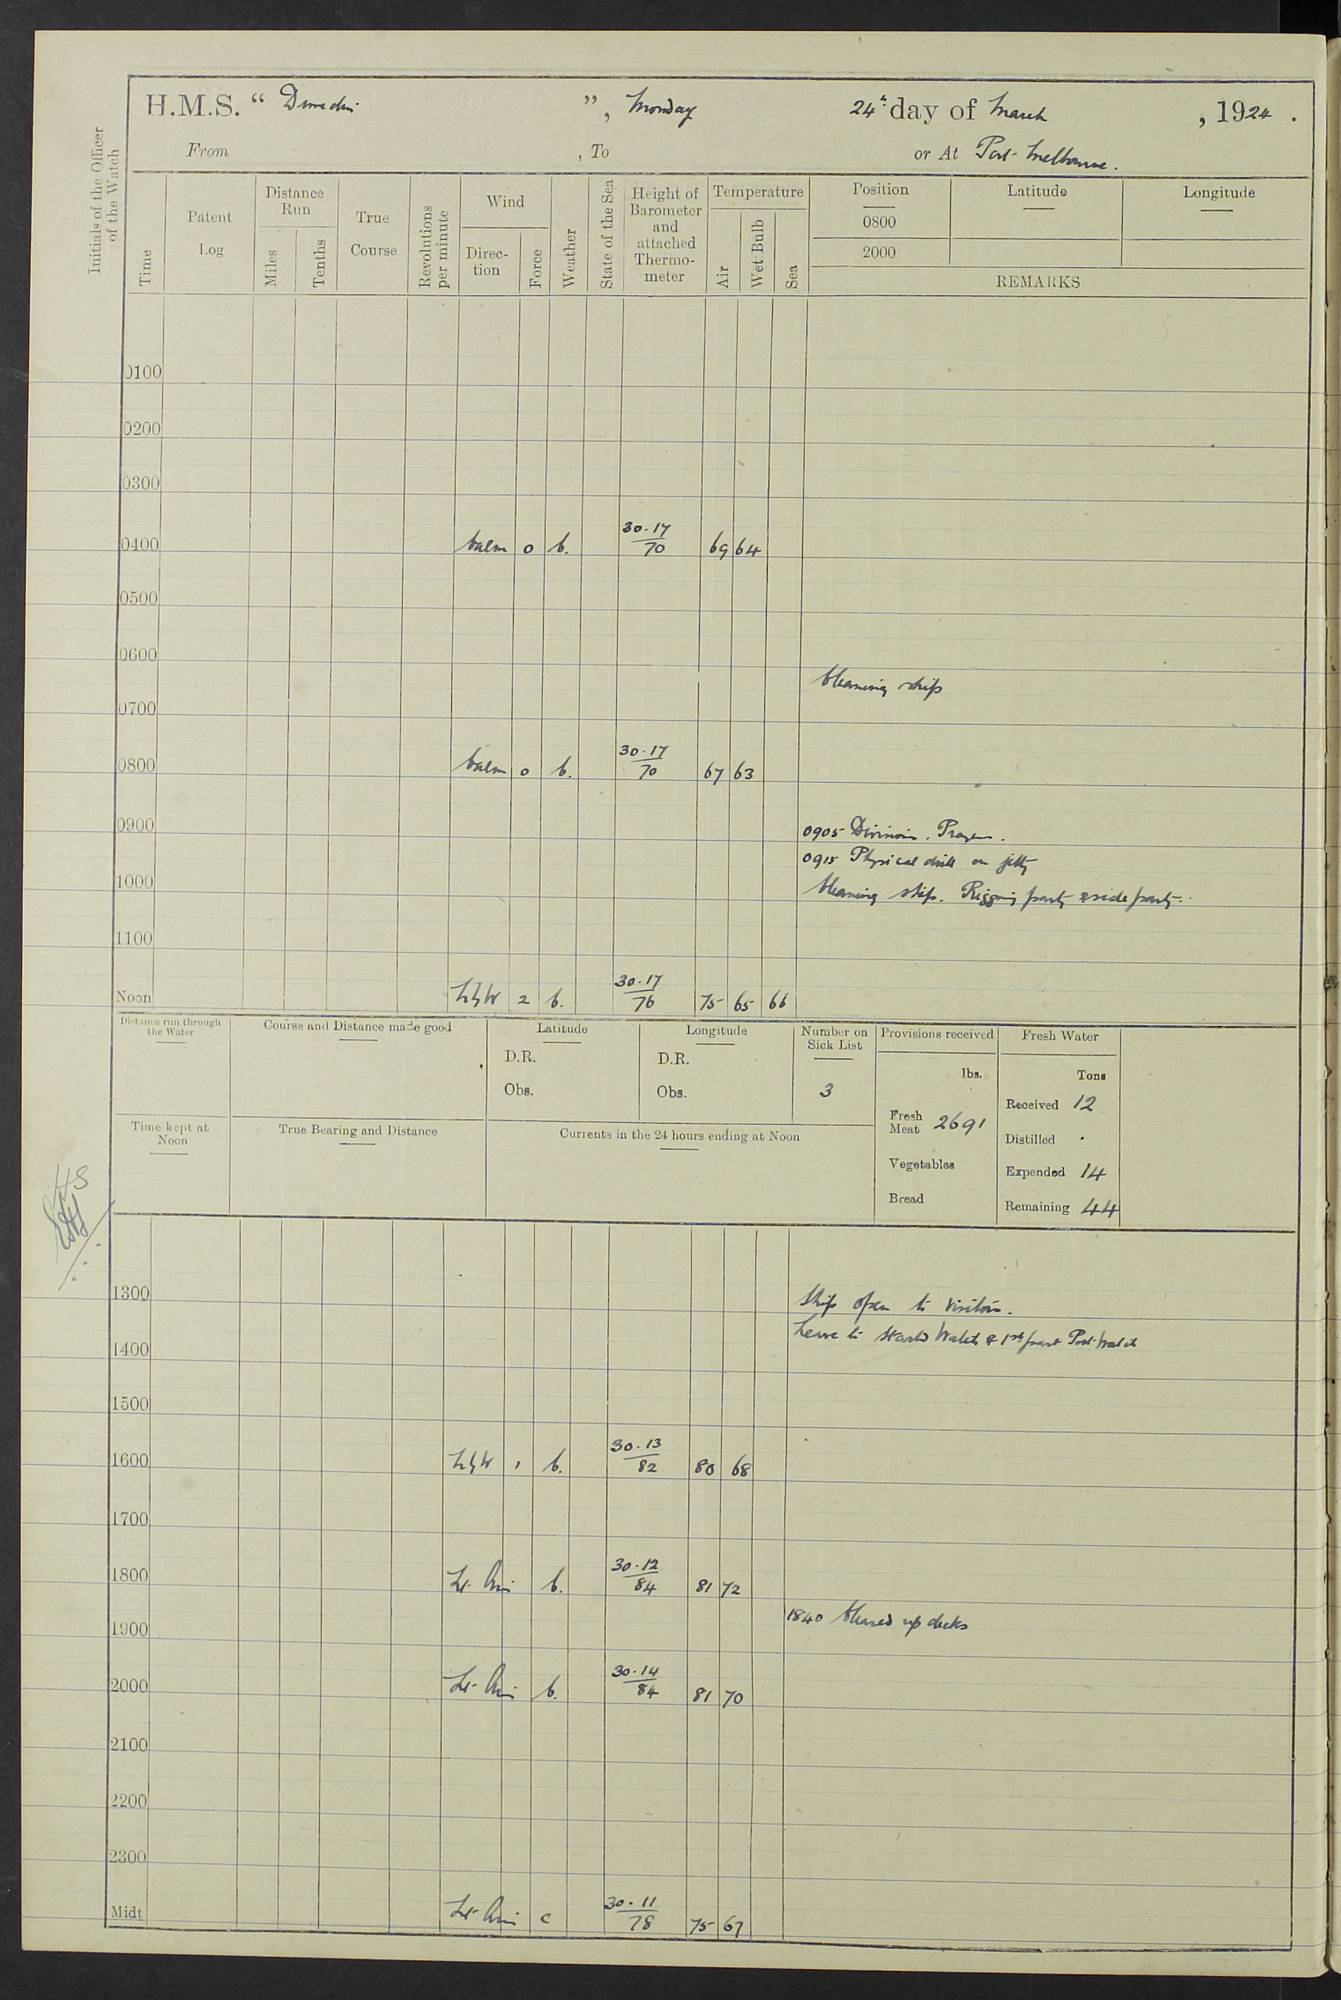 H.M.S. “ Dunedin ”, Monday 24th day of March , 1924 .
From , To or At Port Melbourne.
Initials of the Officer of the Watch
Time
Patent Log
Distance Run
Miles
Tenths
True Course
Revolutions per minute
Wind
Direc-tion
Force
Weather
State of the Sea
Height of Barometer and attached Thermo-meter
Temperature
Air
Wet Bulb
Sea
Position Latitude Longitude
0800
2000
REMARKS
0100
0200
0300
0400 Calm 0 b. 30.17/70 69 64
0500
0600
Cleaning ship
0700
0800 Calm 0 b. 30.17/70 67 63
0900 0905 Divisions. Prayers.
0915 Physical drill on jetty
1000 Cleaning ship. Rigging party & side party.
1100
Noon 2 b. 30.17/76 75 65 66
Distance run through the Water
Course and Distance made good
Latitude
D.R.
Obs.
Longitude
D.R.
Obs.
Number on Sick List
3
Provisions received
lbs.
Fresh Meat 2691
Vegetables
Bread
Fresh Water
Tons
Received 12
Distilled .
Expended 14
Remaining 44
Time kept at Noon
True Bearing and Distance
Currents in the 24 hours ending at Noon
1300 Ship open to visitors.
Leave to Starbd Watch & 1st part Port Watch
1400
1500
1600 1 b. 30.13/82 80 68
1700
1800 Lt. Airs b. 30.12/84 81 72
1840 Cleared up decks
1900
2000 Lt. Airs b. 30.14/84 81 70
2100
2200
2300
Midt Lt. Airs c 30.11/78 75 67